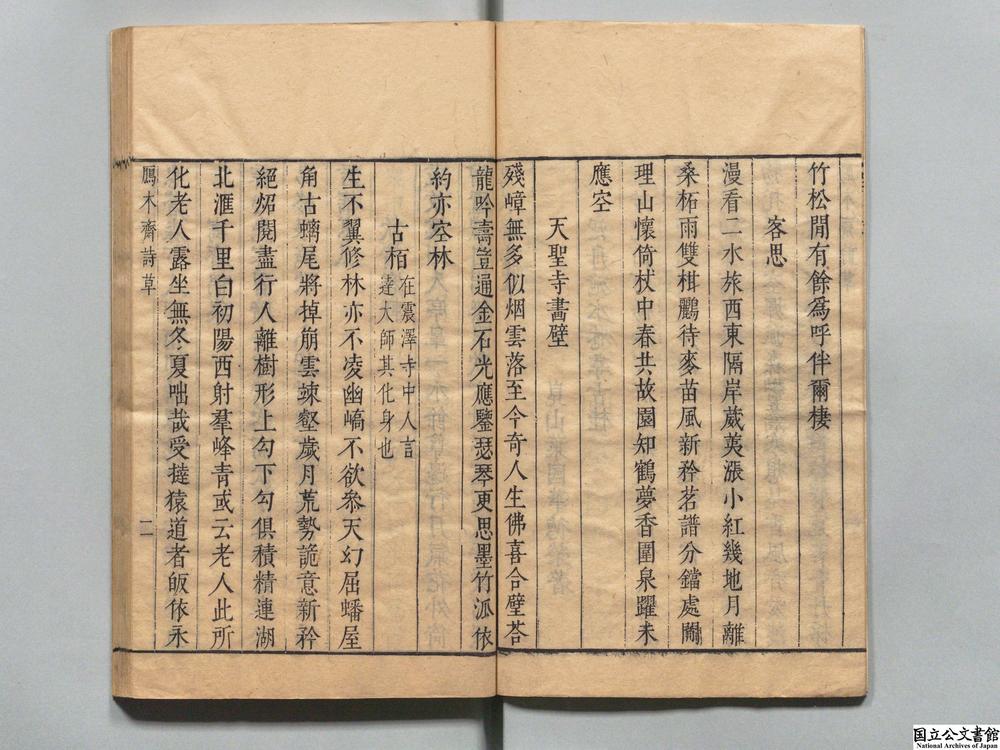 竹松閒有餘為呼伴爾棲
客思
漫看二水旅西東隔岸葳荑漲小紅幾地月離
桑柘雨雙柑鸝待麥苗風新矜茗譜分鐺處閙
理山懷倚杖中春共故園知鶴夢香圍泉躍未
應空
天聖寺書壁
殘嶂無多似烟雲落至今奇人生佛喜合壁荅
龍吟壽豈通金石光應鑒瑟琴更思墨竹泒依
約亦空林
古栢
在震澤寺中人言
達大師其化身也
生不翼修林亦不凌幽嶠不欲叅天幻屈蟠屋
角古螭尾將掉崩雲竦壑歲月荒勢詭意新矜
絕炤閱盡行人離樹形上勾下勾俱積精連湖
北滙千里白初陽西射羣峰青或云老人此所
化老人露坐無冬夏咄哉受撻猿道者皈依永
鴈木齊詩草
二
国立公文書館
National Archives of Japan